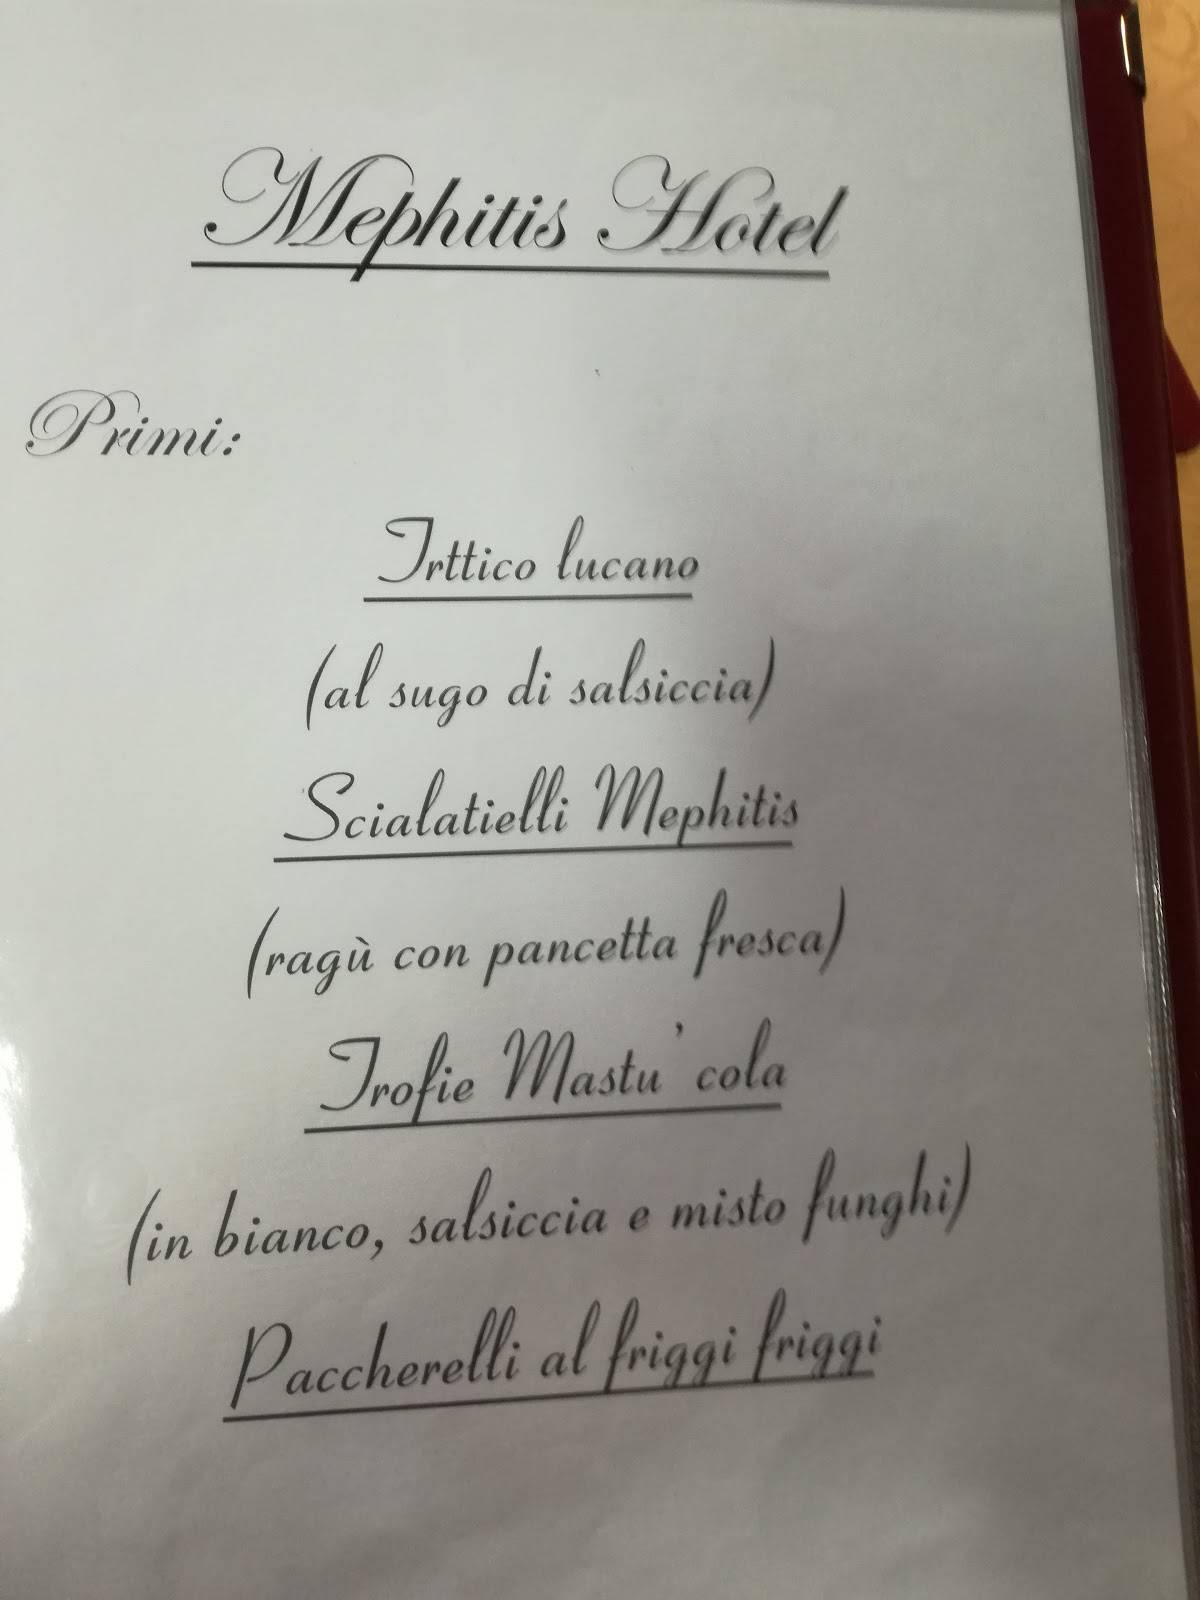 Mephitis Hotel
Primi:
Trttico lucano
(al sugo di salsiccia)
Scialatielli Mephitis
(ragù con pancetta fresca)
Trofie Mastu' cola
(in bianco, salsiccia e misto funghi)
Paccherelli al friggi friggi